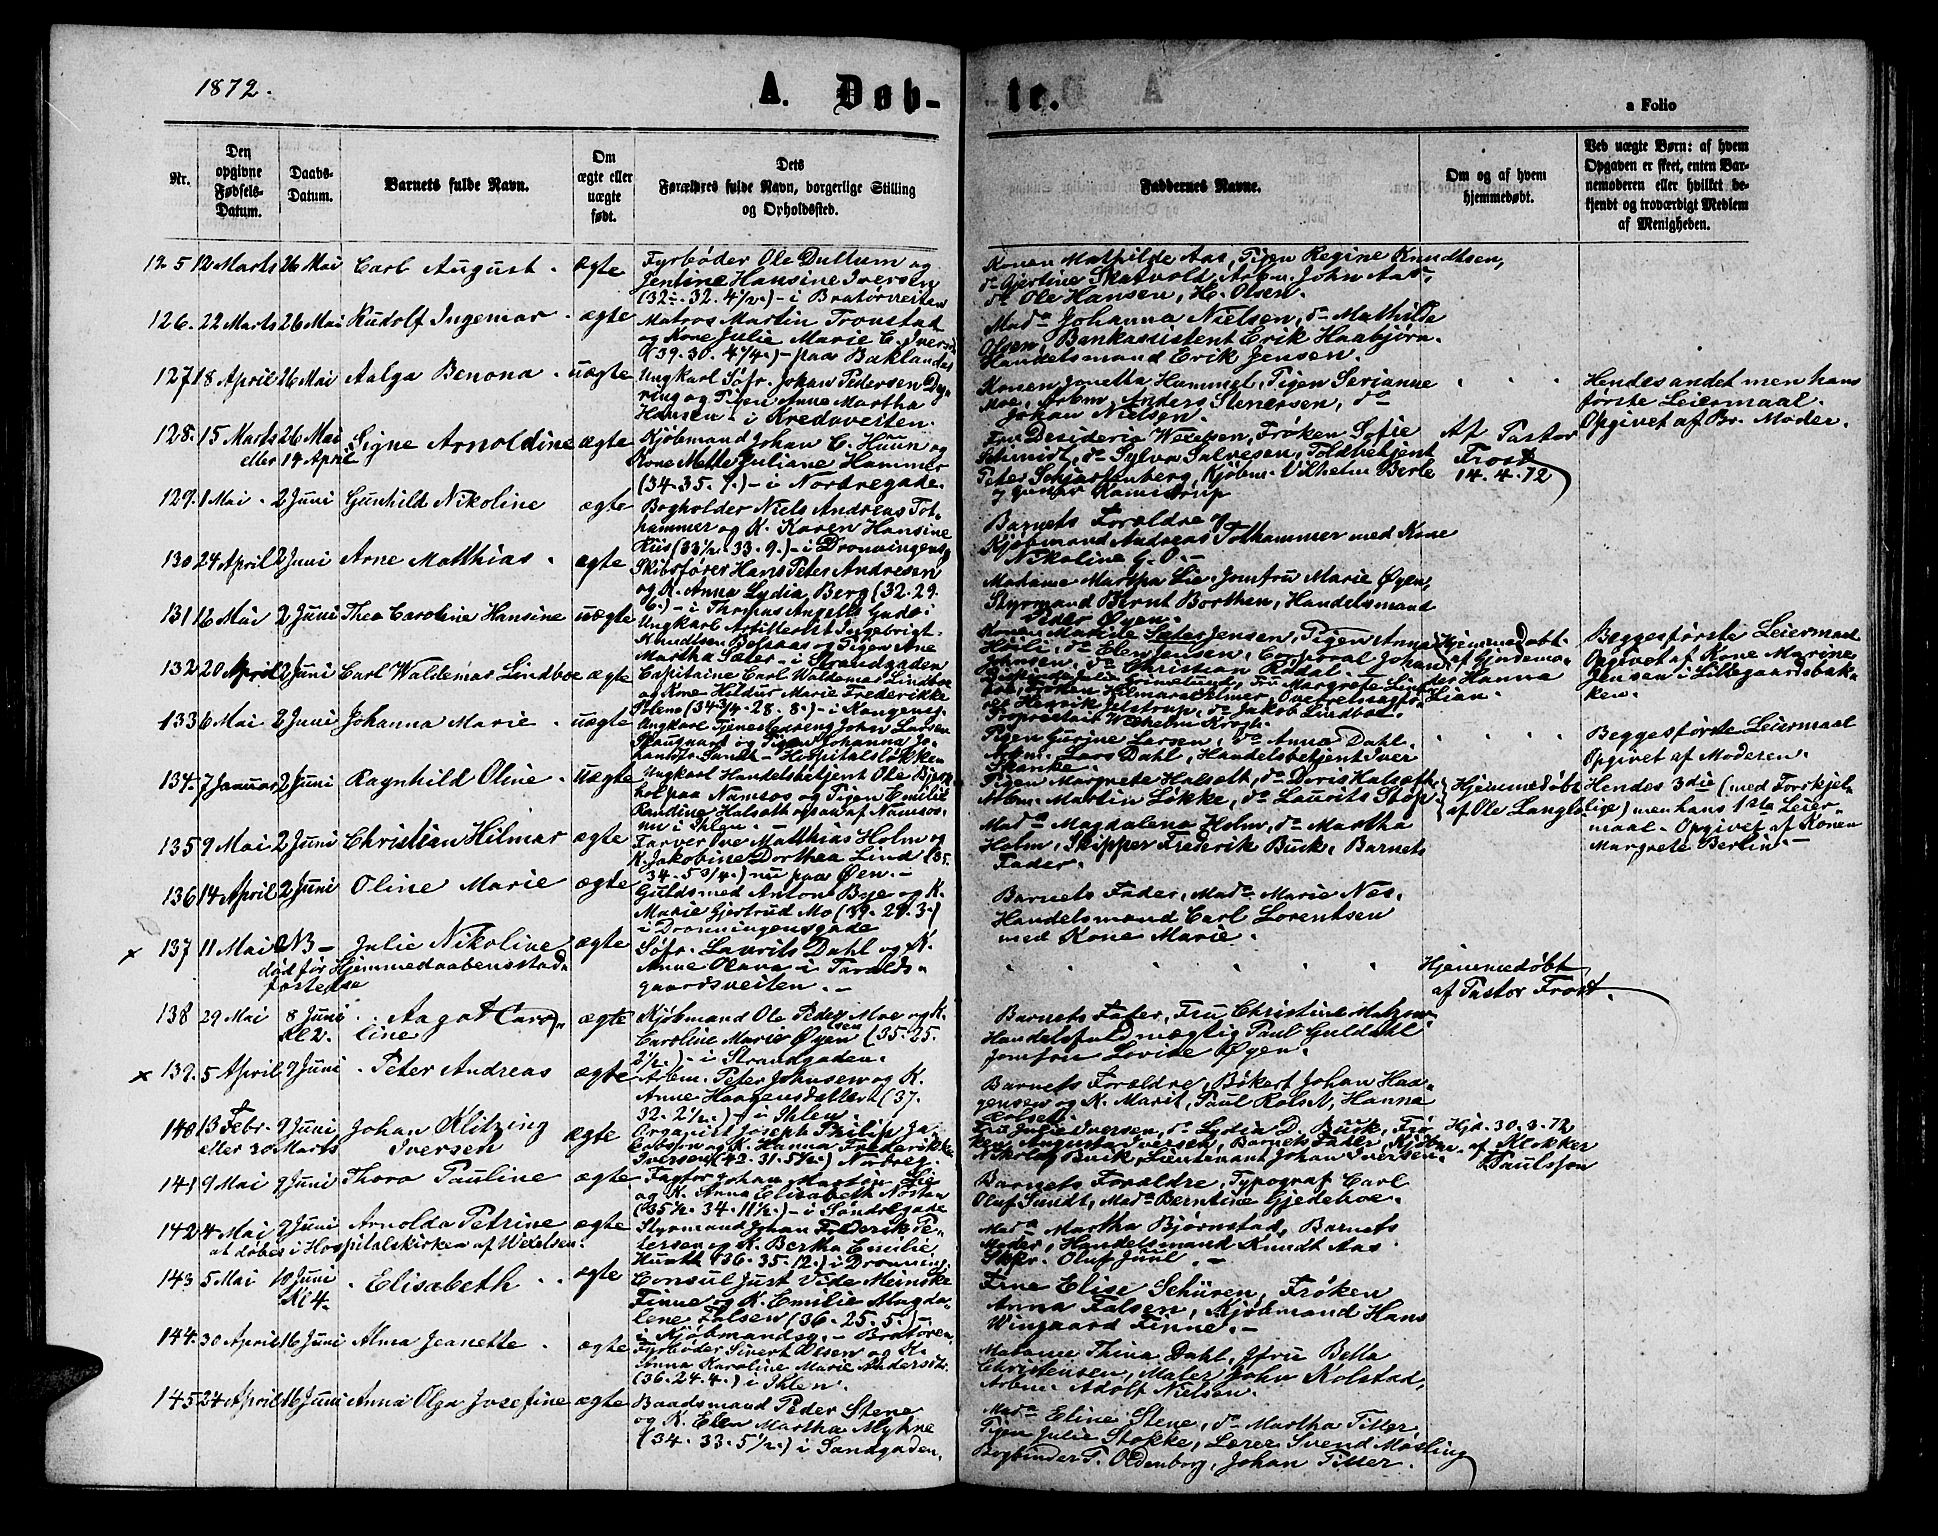 1872.
A. Døb-
te.
a Folio
Nr.
Den opgivne Fødsels-Datum.
Daabs-Datum.
Barnets fulde Navn.
Om ægte eller uægte født.
Dets Forældres fulde Navn, borgerlige Stilling og Opholdssted.
Faddernes Navne.
Om og af hvem hjemmedøbt.
Ved uægte Børn: af hvem Opgaven er skeet, enten Barnemoderen eller hvilket bekjendt og troværdigt Medlem af Menigheden.
125 12 Marts 26 Mai Carl August. ægte
Fyrbøder Ole Dullum og
Jentine Hansine Iversen
(32-32. 4½.) - i Bratørveiten
Konen Mathilde Aas, Pigen Regine Knudtsen,
do Gjertine Skatvold, Arbm. John Aas,
do Ole Hansen, H. Olsen.
126. 22 Marts 26 Mai Rudolf Ingemar. ægte
Matros Martin Tronstad
og Kone Julie Marie C. Iversen
(39. 30. 4¼.) - paa Baklandet
Mada Johanna Nielsen, do Mathilde
Olsen, Bankassistent Erik Haabjørn.
Handelsmand Erik Jensen.
127 18 April 26 Mai Aalga Benona. uægte
Ungkarl Søfr. Johan Pedersen Dy-
ring og Pigen Anne Martha
Hansen - i Kredsveiten.
Konen Jonetta Hammel, Pigen Serianne
Moe, Arbm. Anders Stenersen, do
Johan Nielsen.
Hendes andet men hans
første Leiermaal.
Opgivet af Br. Moder.
128. 15 Marts 26 Mai Signe Arnoldine ægte
eller 14 April
Kjøbmand Johan C. Huun og
Kone Mette Juliane Hammer
(34. 35. 7.) - i Nordregade.
Fru Desideria Wexelsen, Frøken Sofie
Schmidt, do Sylva Salvesen, Toldbetjent
Peter Schjärfenberg, Kjøbm. Vilhelm Berle
og Gustav Ramstrup
Af Pastor
Frost
14. 4. 72
129. 1 Mai. 2 Juni Gunhild Nikoline ægte
Bogholder Niels Andreas Tot-
hammer og K. Karen Hansine
Riis (33½. 33. 9.) - i Dronningensg.
Barnets Forældre og
Kjøbmand Andreas Tothammer med Kone
Nikoline G. O. -
130 24 April 2 Juni Arne Matthias. ægte
Skibsfører Hans Peter Andresen
og K. Anna Lydia Berg (32. 29.
6.) - i Thomas Angells Gade.
Madame Martha Lie. Jomfru Marie Øyen,
Styrmand Bernt Borthen, Handelsmand
Peder Øyen.
131 16 Mai 2 Juni Thea Caroline Hansine uægte
Ungkarl Artillerist Ingebrigt
Knudtsen Bolsaas og Pigen Ane
Martha Sæter - i Strandgaden
Høili, do Elen Jensen, Corporal Johan
Johnsen, do Christian Rødal.
Hjemmedøbt
af Gjordemo-
der Hanna
Lian.
Begges første Leiermaal
Opgivet af Kone Marine
Jensen i Lillegaardsbak-
ken.
132 20 April 2 Juni Carl Waldemar Lindboe ægte
Capitaine Carl Waldemar Lindboe
og Kone Hildur Marie Frederikke
(34¾ - 28. 8.) - i Kongensg.
Proprietair Wilhelm Krogh.
133 6 Mai 2 Juni Johanna Marie. uægte
Ungkarl Tjenestedreng John Larsen
Haugaart og Pigen Johanna Jo-
hansdr Sandt - Hospitalsløkken
Pigen Gurine Larsen, do Anna Dahl.
Arbm. Lars Dahl, Handelsbetjent Iver
Skancke.
Begges første Leiermaal
Opgivet af Moderen.
134. 7 Januar 2 Juni Ragnhild Oline. uægte
Ungkarl Handelsbetjent Ole Bjerk-
hol paa Namsos og Pigen Emilie
Randine Halseth ogsaa af Namsos.
nu i Ihlen. -
Pigen Margrete Halseth, do Doris Halseth.
Arbm. Martin Løkke, do Laurits Stop
Hjemmedøbt
af Ole Langlo
Hendes 3die (med Forskjel-
lige) men hans 1ste Leier-
maal. Opgivet af Konen
Margrete Berlin. -
135 9 Mai 2 Juni Christian Hilmar ægte
Farver Ove Matthias Holm og
K. Jakobine Dorthea Lind (35.
34. 5¾.) nu paa Øen. -
Mada Magdalena Holm, do Martha
Holm, Skipper Frederik Buck. Barnets
Fader.
136 14 April 2 Juni Oline Marie ægte
Guldsmed Anton Bye og K.
Marie Gjertrud Mo (39. 29. 3.)
i Dronningensgade
Barnets Fader, Mada Marie Nes.
Handelsmand Carl Lorentsen
med Kone Marie.
× 137 11 Mai NB- Julie Nikoline ægte
død før Hjemmedaabens stad-
fæstelse
Søfr. Laurits Dahl og K.
Anne Olava i Taralds-
gaardsveiten. -
Hjemmedøbt
af Pastor Frost.
138 29 Mai 8 Juni Aagot Caro- ægte
Kl 2. line
Kjøbmand Ole Peder Moe og K.
Caroline Marie Øyen (35. 25.
2½.) - i Strandgaden.
Barnets Fader, Fru Christine Matzow,
Handelsfuldmægtig Paul Guldahl
Jomfru Lovise Øyen.
× 139. 5 April 9 Juni. Peter Andreas ægte
Arbm. Peter Johnsen og K.
Anne Haagensdatter (37.
32. 2½.) - i Ihlen.
Barnets Forældre, Bøkert Johan Haa-
gensen og K. Marit, Paul Rolset, Hanna
Rolseth.
140 13 Febr. 9 Juni Johan Klitzing ægte
eller 30 Marts Iversen
Organist Joseph Philip Ja-
cobson og K. Hanna Frederikke
Iversen (43. 31. 5½.) Nordreg.
Fru Julie Iversen, do Lydia D. Buck, Frø-
ken Augusta Iversen, Barnets Fader, Kjøbm.
Nikolay Buck, Lieutenant Johan Iversen.
Hjd. 30. 3. 72
af Klokker
Paulsson
141 9 Mai 9 Juni Thora Pauline ægte
Factor Johan Martin Lie
og K. Anna Elisabeth Nøstan
(35½. 34. 11½.) - i Søndregade
Barnets Forældre, Typograf Carl
Oluf Sundt, Mada Berntine Gjedeboe.
142 4 Mai 9 Juni Arnolda Petrine ægte
at døbes i Hospitalskirken af Wexelsen.
Styrmand Johan Frederik Pe-
tersen og K. Bertha Emilie
(36. 35. 12.) i Dronningg.
Mada Martha Bjørnstad, Barnets
Moder, Handelsmand Knudt Aas
Skpr. Oluf Juul. -
143. 5 Mai 10 Juni Elisabeth ægte
Kl 4.
Consul Just Vide Meinske
Finne og K. Emilie Magda-
lene Falsen (36. 25. 5.) -
i Kjøbmandsg. - Bratøren
Frue Elise Schüren, Frøken
Anna Falsen, Kjøbmand Hans
Wingaard Finne. -
144. 30 April 16 Juni Alma Jeanette. ægte
Fyrbøder Sivert Olsen og K.
Anna Karoline Marie Andersdr.
(36. 24. 4.) i Ihlen.
Madame Thina Dahl, Jfru Bella
Christensen, Maler John Kolstad,
Arbm. Adolf Nielsen.
145 24 April 16 Juni Anna Olga Josefine ægte
Baadsmand Peder Stene
og K. Elen Martha Myhre
(34. 33. 5½.) i Sandgaden.
Mada Eline Stene, do Martha Titter,
Pigen Julie Stokke, Lærer Svend Møsling
Bogbinder T. Oldenborg, Johan Titter.